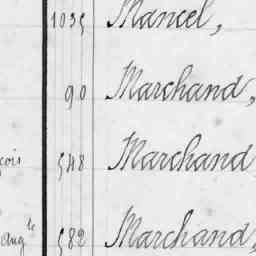 1035 Mancel,
90 Marchand,
çois 548 Marchand
Augte 582 Marchand,